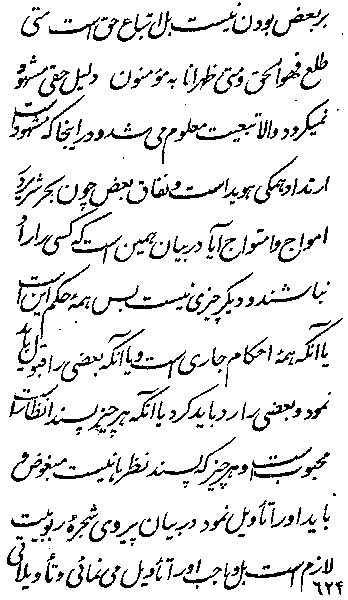 بر بعض بودن نیست بل اتباع حق است متی
طلع فهو الحق و متی ظهر انا به مؤمنون دلیل حقی مشهود
نمیگردد والا تبعیت معلوم می شد و در اینجا که مشهود است
ارتداد همگی هویدا است و نفاق بعض چون بحر شریر
امواج و استواج آیا در بیان همین است که کسی را راد
نباشند و دیگر چیزی نیست بس همهٔ حکم این است
یا آنکه همهٔ احکام جاری است و یا آنکه بعضی را قبول باید
نمود و بعضی را رد باید کرد یا آنکه هر چیز پسند انظار است
محبوب است و هر چیز که پسند نظرها نیست مبغوض و
باید او را تأویل نمود در بیان پیروی شجرهٔ ربوبیت
لازم است بل واجب او را تأویل می نمائی و تأویلاتی
۶۲۴